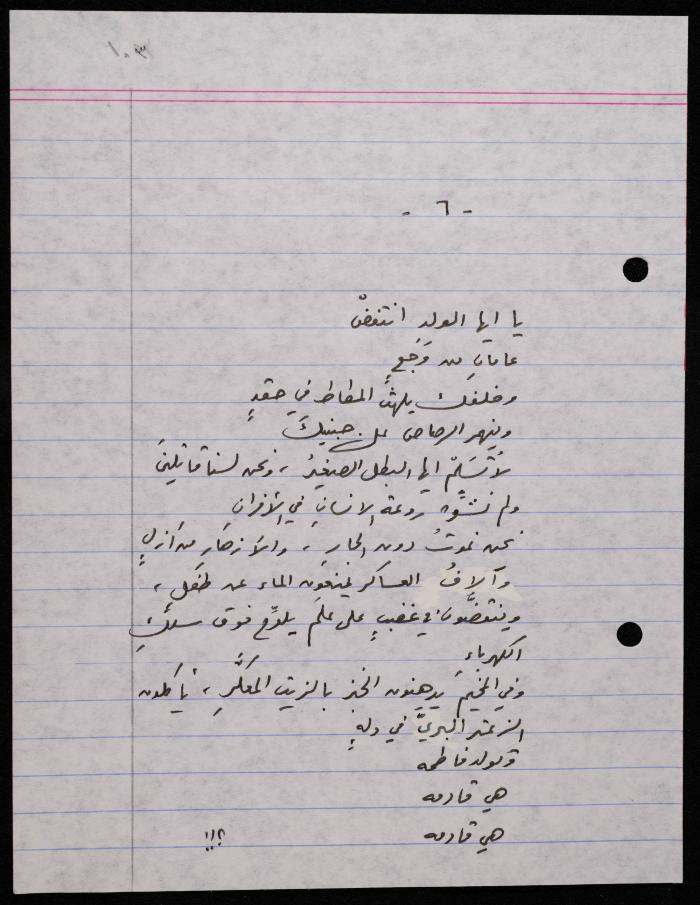 ١٠٣
- ٦ -
يا ايها الولد انتفضْ
عامانِ من وَجَعٍ
وخلفك يلهثُ المطاط في حقدٍ
وينهر الرصاص على جنبيكَ
لا تَسَلّم ايها البطل الصغيرُ ، ونحن لسنا قاتلينَ
ولم نشوّه روعة الانسانِ في الأفران
نحن نموتُ دون الجارِ ، والأزهارِ من أزلٍ
وآلافُ العساكر يمنعون الماء عن طفلٍ ،
وينتفضون في غضبٍ على علمٍ يلوّح فوق سلكِ
الكهرباءِ
وفي المخيم يدهنون الخبز بالزيتِ المعكّرِ ، يأكلون
الزعتر البريَّ في ولهٍ
وتولد فاطمه
هي قادمه
هي قادمه !!؟